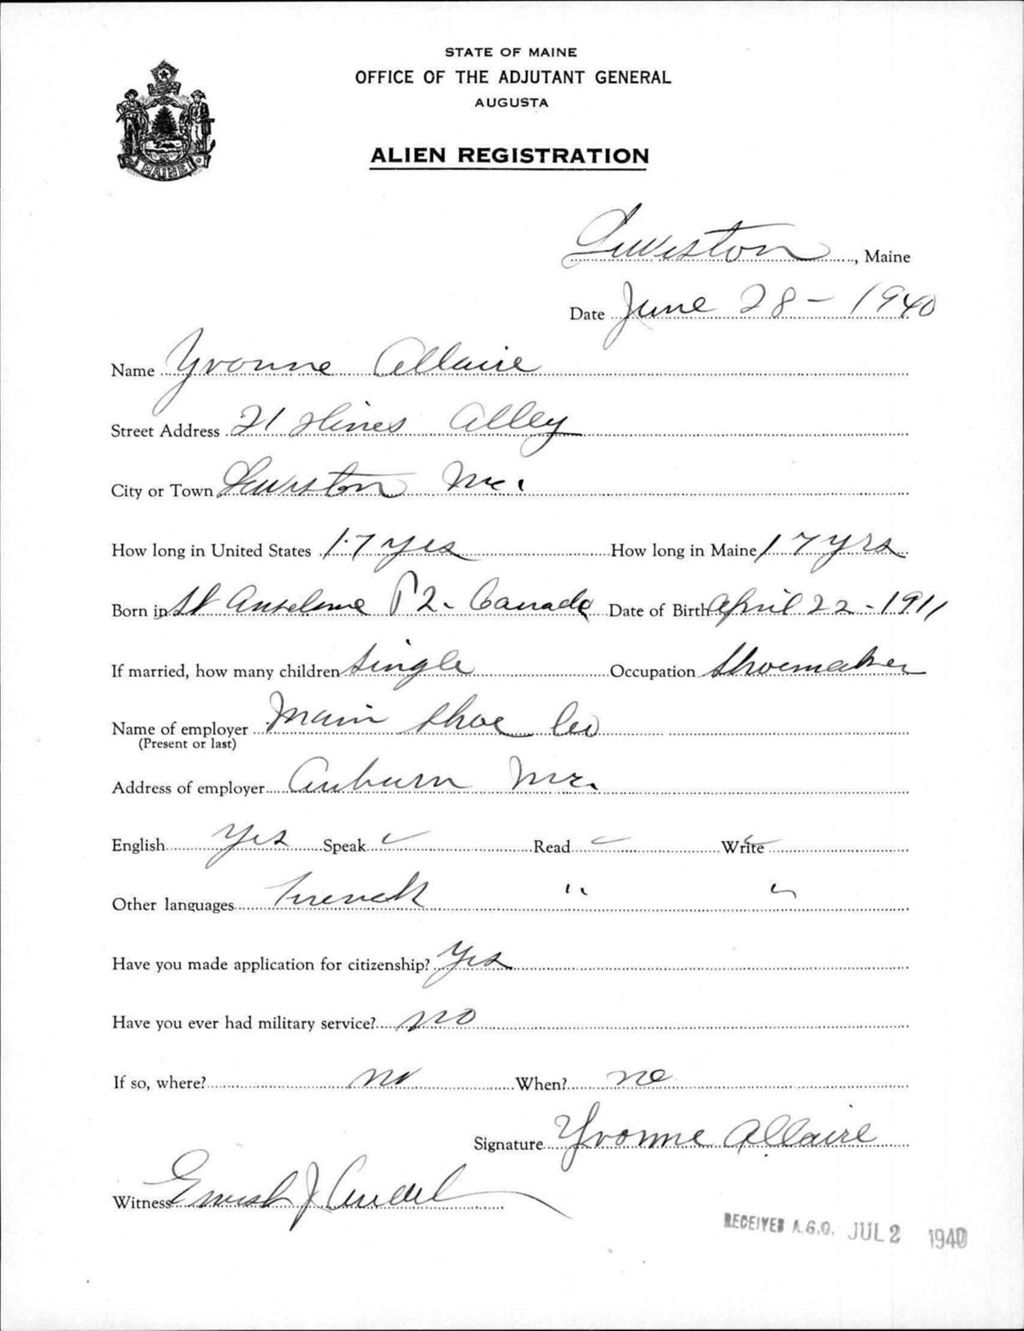 STATE OF MAINE
OFFICE OF THE ADJUTANT GENERAL
AUGUSTA
ALIEN REGISTRATION
MAINE
Lewiston, Maine
Date June 28 - 1940
Name Yvonne Allaire
Street Address 21 Hines Alley
City or Town Lewiston Me.
How long in United States 17 yrs How long in Maine 17 yrs
Born in St Anselme P2. Canada Date of Birth April 22 - 1911
If married, how many children single Occupation Shoemaker
Name of employer Main Shoe Co
(Present or last)
Address of employer Auburn Me.
English yes Speak ✓ Read ✓ Write ✓
Other languages French " "
Have you made application for citizenship? Yes
Have you ever had military service? no
If so, where? no When? no
Signature Yvonne Allaire
Witness J
RECEIVED A.G.O. JUL 2 1940